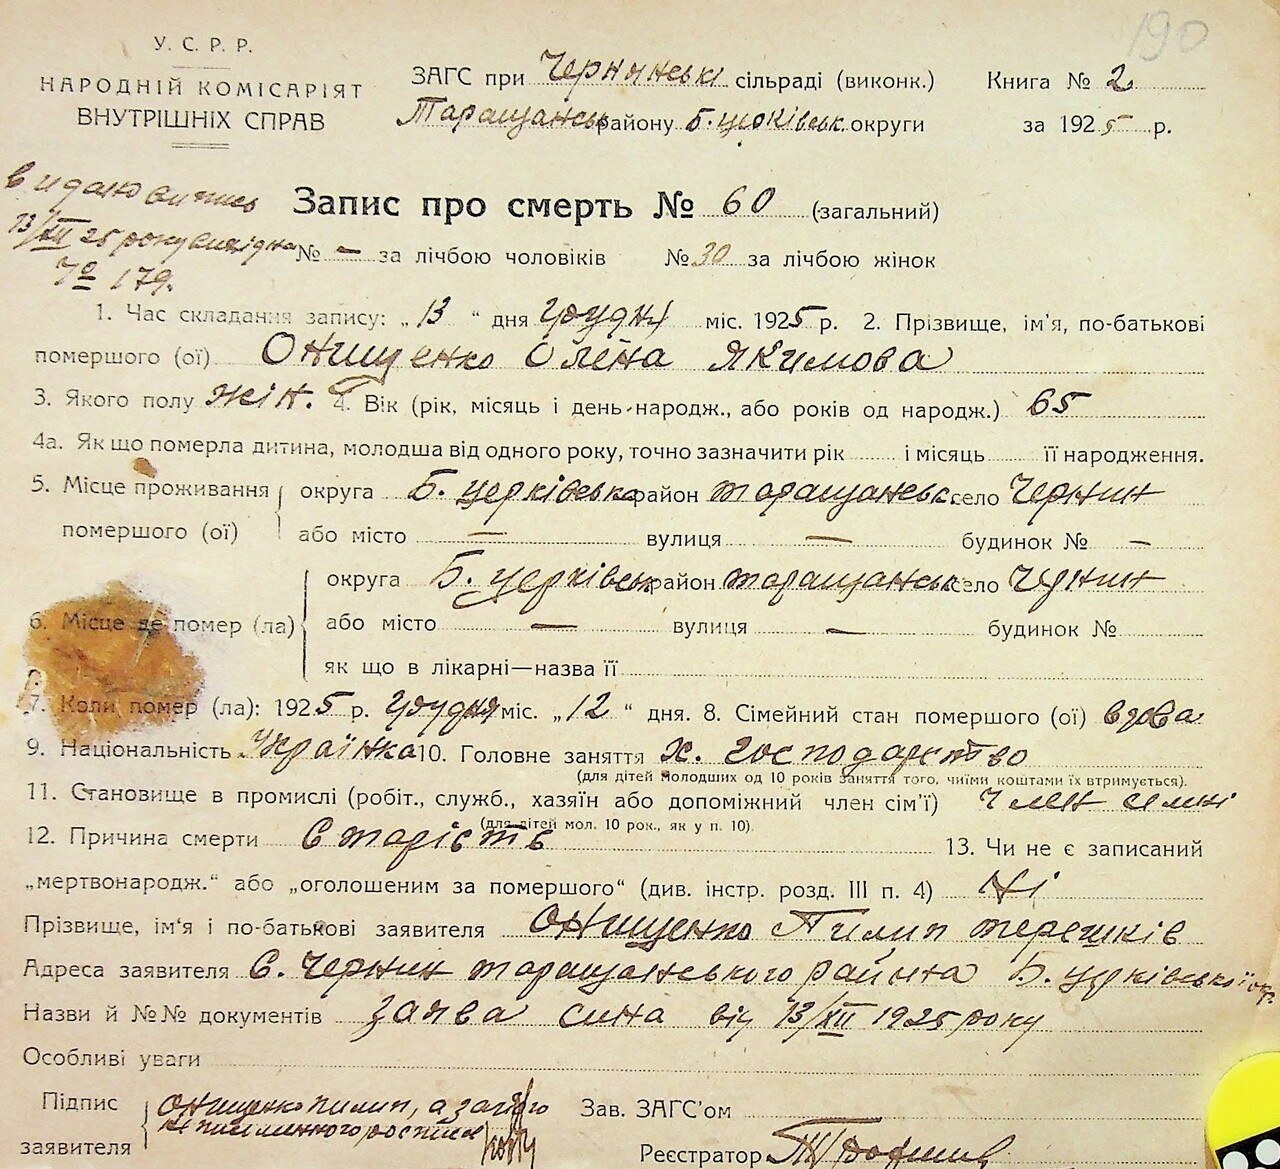 190
У. С. Р. Р.
НАРОДНІЙ КОМІСАРІЯТ
ВНУТРІШНІХ СПРАВ
ЗАГС при Чернинські сільраді (виконк.)
Таращанськ району Б. церківськ. округи
Книга № 2
за 1925 р.
видано випись
13/XII 25 року
№ 179.
Запис про смерть № 60 (загальний)
№ — за лічбою чоловіків № 30 за лічбою жінок
1. Час складання запису: „13“ дня грудня міс. 1925 р. 2. Прізвище, ім'я, по-батькові
помершого (ої) Онищенко Олена Якимова
3. Якого полу жін. 4. Вік (рік, місяць і день народж., або років од народж.) 65
4а. Як що померла дитина, молодша від одного року, точно зазначити рік і місяць її народження.
5. Місце проживання помершого (ої) округа Б. церківська район таращанськ. село Чернин
або місто — вулиця — будинок № —
6. Місце де помер (ла) округа Б. церківськ район таращанськ село Чернин
або місто — вулиця — будинок №
як що в лікарні—назва її
7. Коли помер (ла): 1925 р. грудня міс. „12“ дня. 8. Сімейний стан помершого (ої) вдова
9. Національність Українка 10. Головне заняття х. господарство
(для дітей молодших од 10 років заняття того, чиїми коштами їх втримується).
11. Становище в промислі (робіт., служб., хазяїн або допоміжний член сім'ї) член сімні
(для дітей мол. 10 рок., як у п. 10).
12. Причина смерти Старість 13. Чи не є записаний
„мертвонародж.“ або „оголошеним за помершого“ (див. інстр. розд. III п. 4) Ні
Прізвище, ім'я і по-батькові заявителя Онищенко Пилип терешків
Адреса заявителя С. Чернин таращанського района Б. церківської окр.
Назви й №№ документів заява сина від 13/XII 1925 року
Особливі уваги
Підпис заявителя Онищенко пилип, а за його
неписьменного росписався
Зав. ЗАГС'ом
Реєстратор